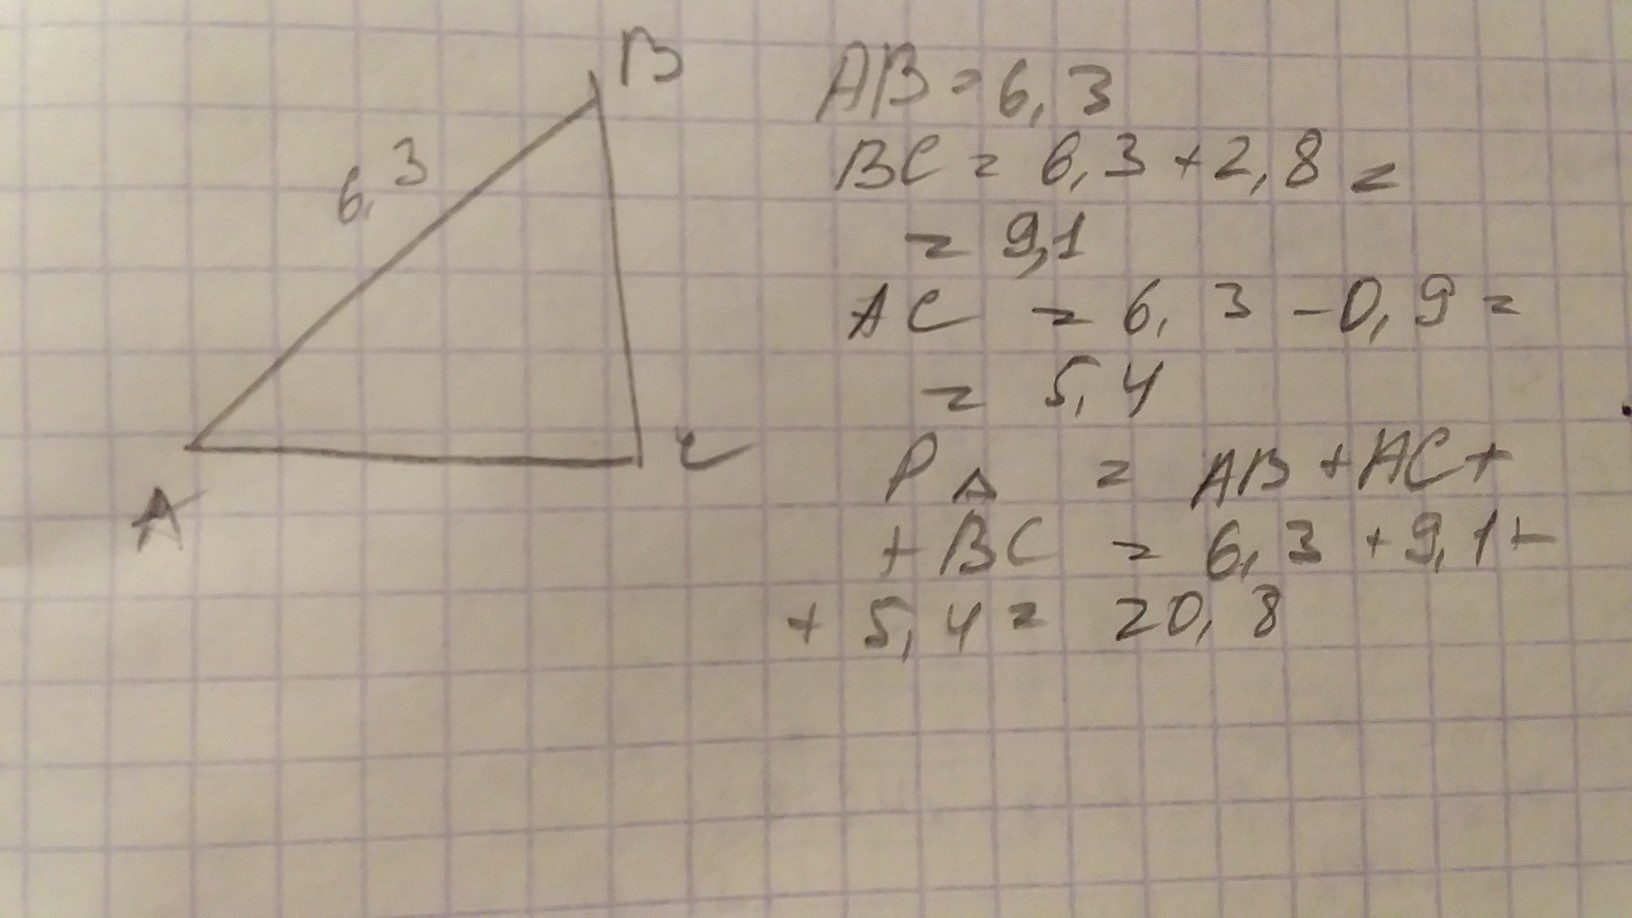 B
6,3
A
C
AB = 6,3
BC = 6,3 + 2,8 =
= 9,1
AC = 6,3 - 0,9 =
= 5,4
P△ = AB + AC +
+ BC = 6,3 + 9,1 +
+ 5,4 = 20,8